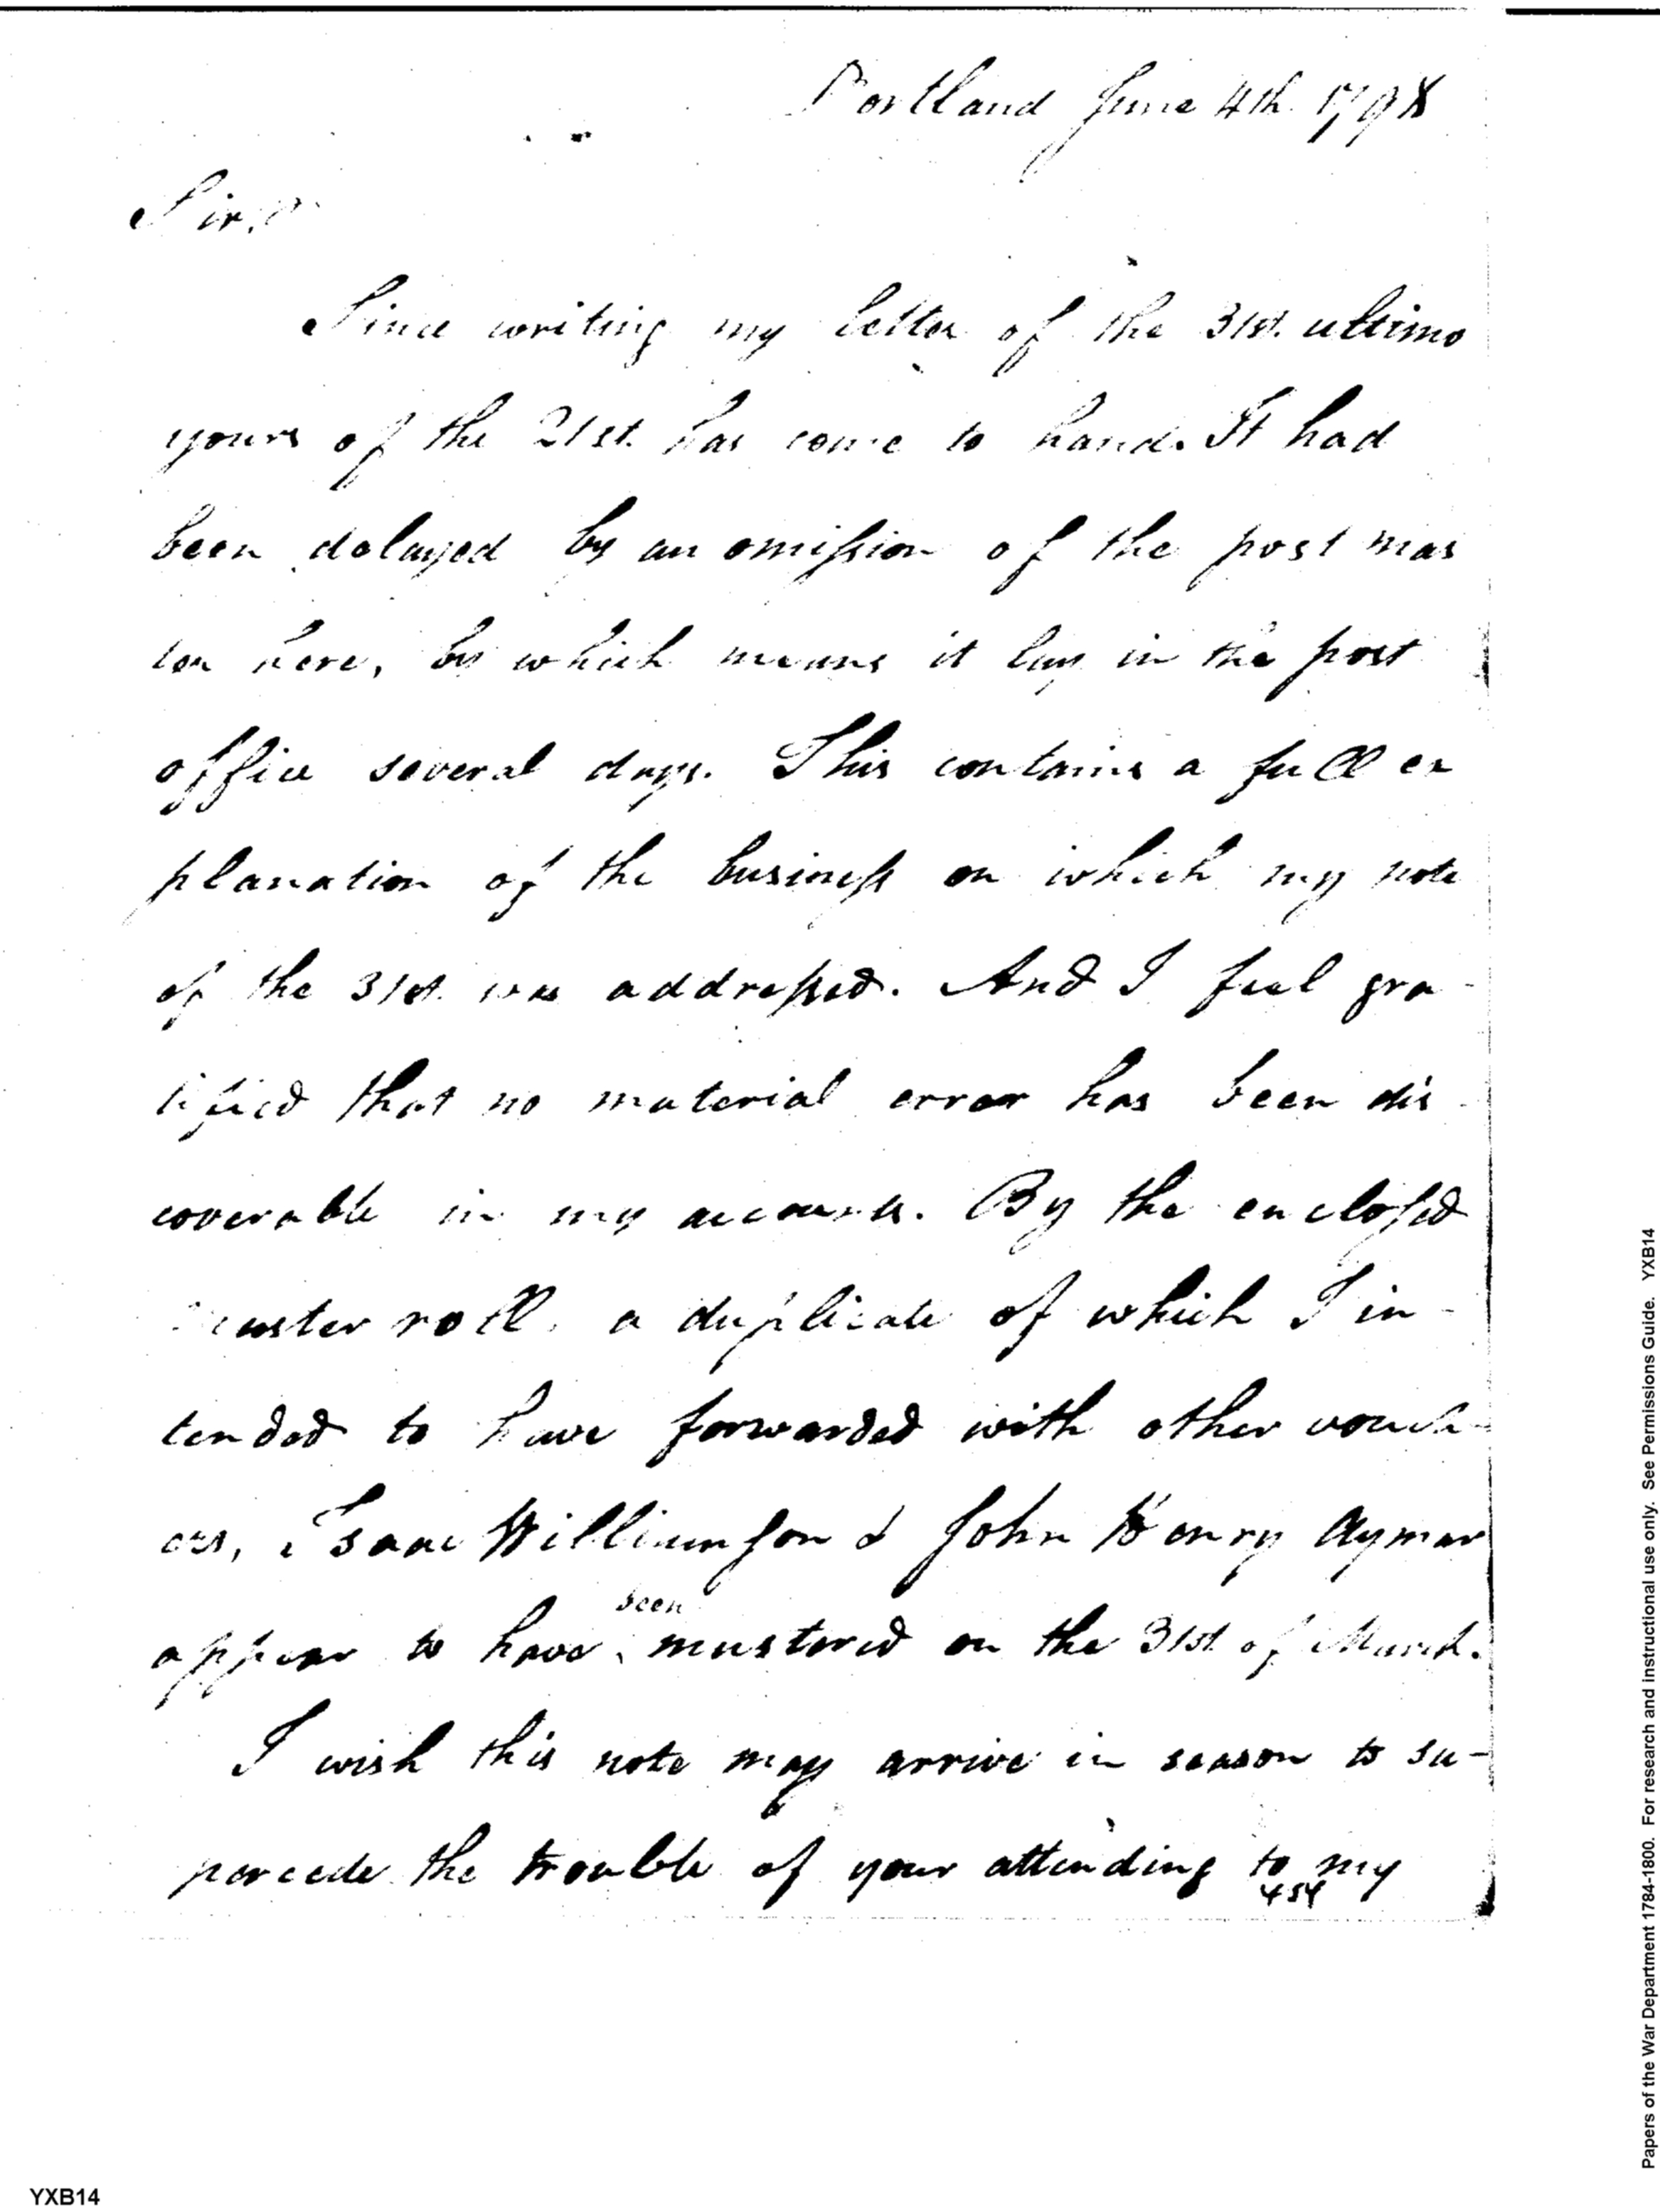 Portland June 4th 1798
Sir,
Since writing my letter of the 31st. ultimo
yours of the 21st. has come to hand. It had
been delayed by an omission of the post mas
ter here, by which means it lay in the post
office several days. This contains a full ex
planation of the business on which my note
of the 31st. was addressed. And I feel gra-
tified that no material error has been dis-
coverable in my accounts. By the enclosed
muster roll, a duplicate of which I in-
tended to have forwarded with other vouch-
ers, Isaac Williamson & John Henry Aymar
appear to have been mustered on the 31st of March.
I wish this note may arrive in season to su-
percede the trouble of your attending to my
454
Papers of the War Department 1784-1800. For research and instructional use only. See Permissions Guide. YXB14
YXB14